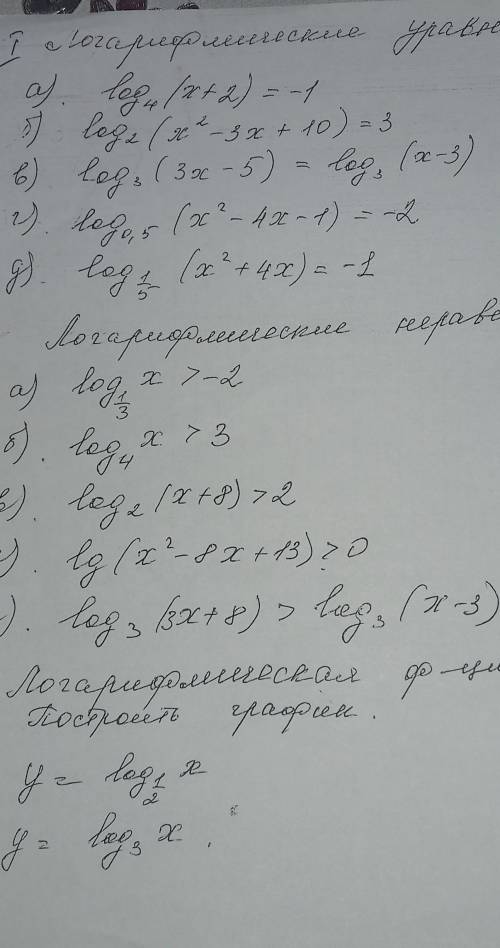 I Логарифмические уравне
а). log₄(x+2) = -1
б) log₂(x² - 3x + 10) = 3
в) log₃(3x - 5) = log₃(x-3)
г). log₀,₅(x² - 4x - 1) = -2
д). log_{1/5}(x² + 4x) = -1
Логарифмические нераве
а) log_{1/3} x > -2
б). log₄ x > 3
в). log₂(x+8) > 2
). lg(x² - 8x + 13) > 0
). log₃(3x+8) > log₃(x-3)
Логарифмическая ф-ци
Построить график.
y = log_{1/2} x
y = log₃ x.